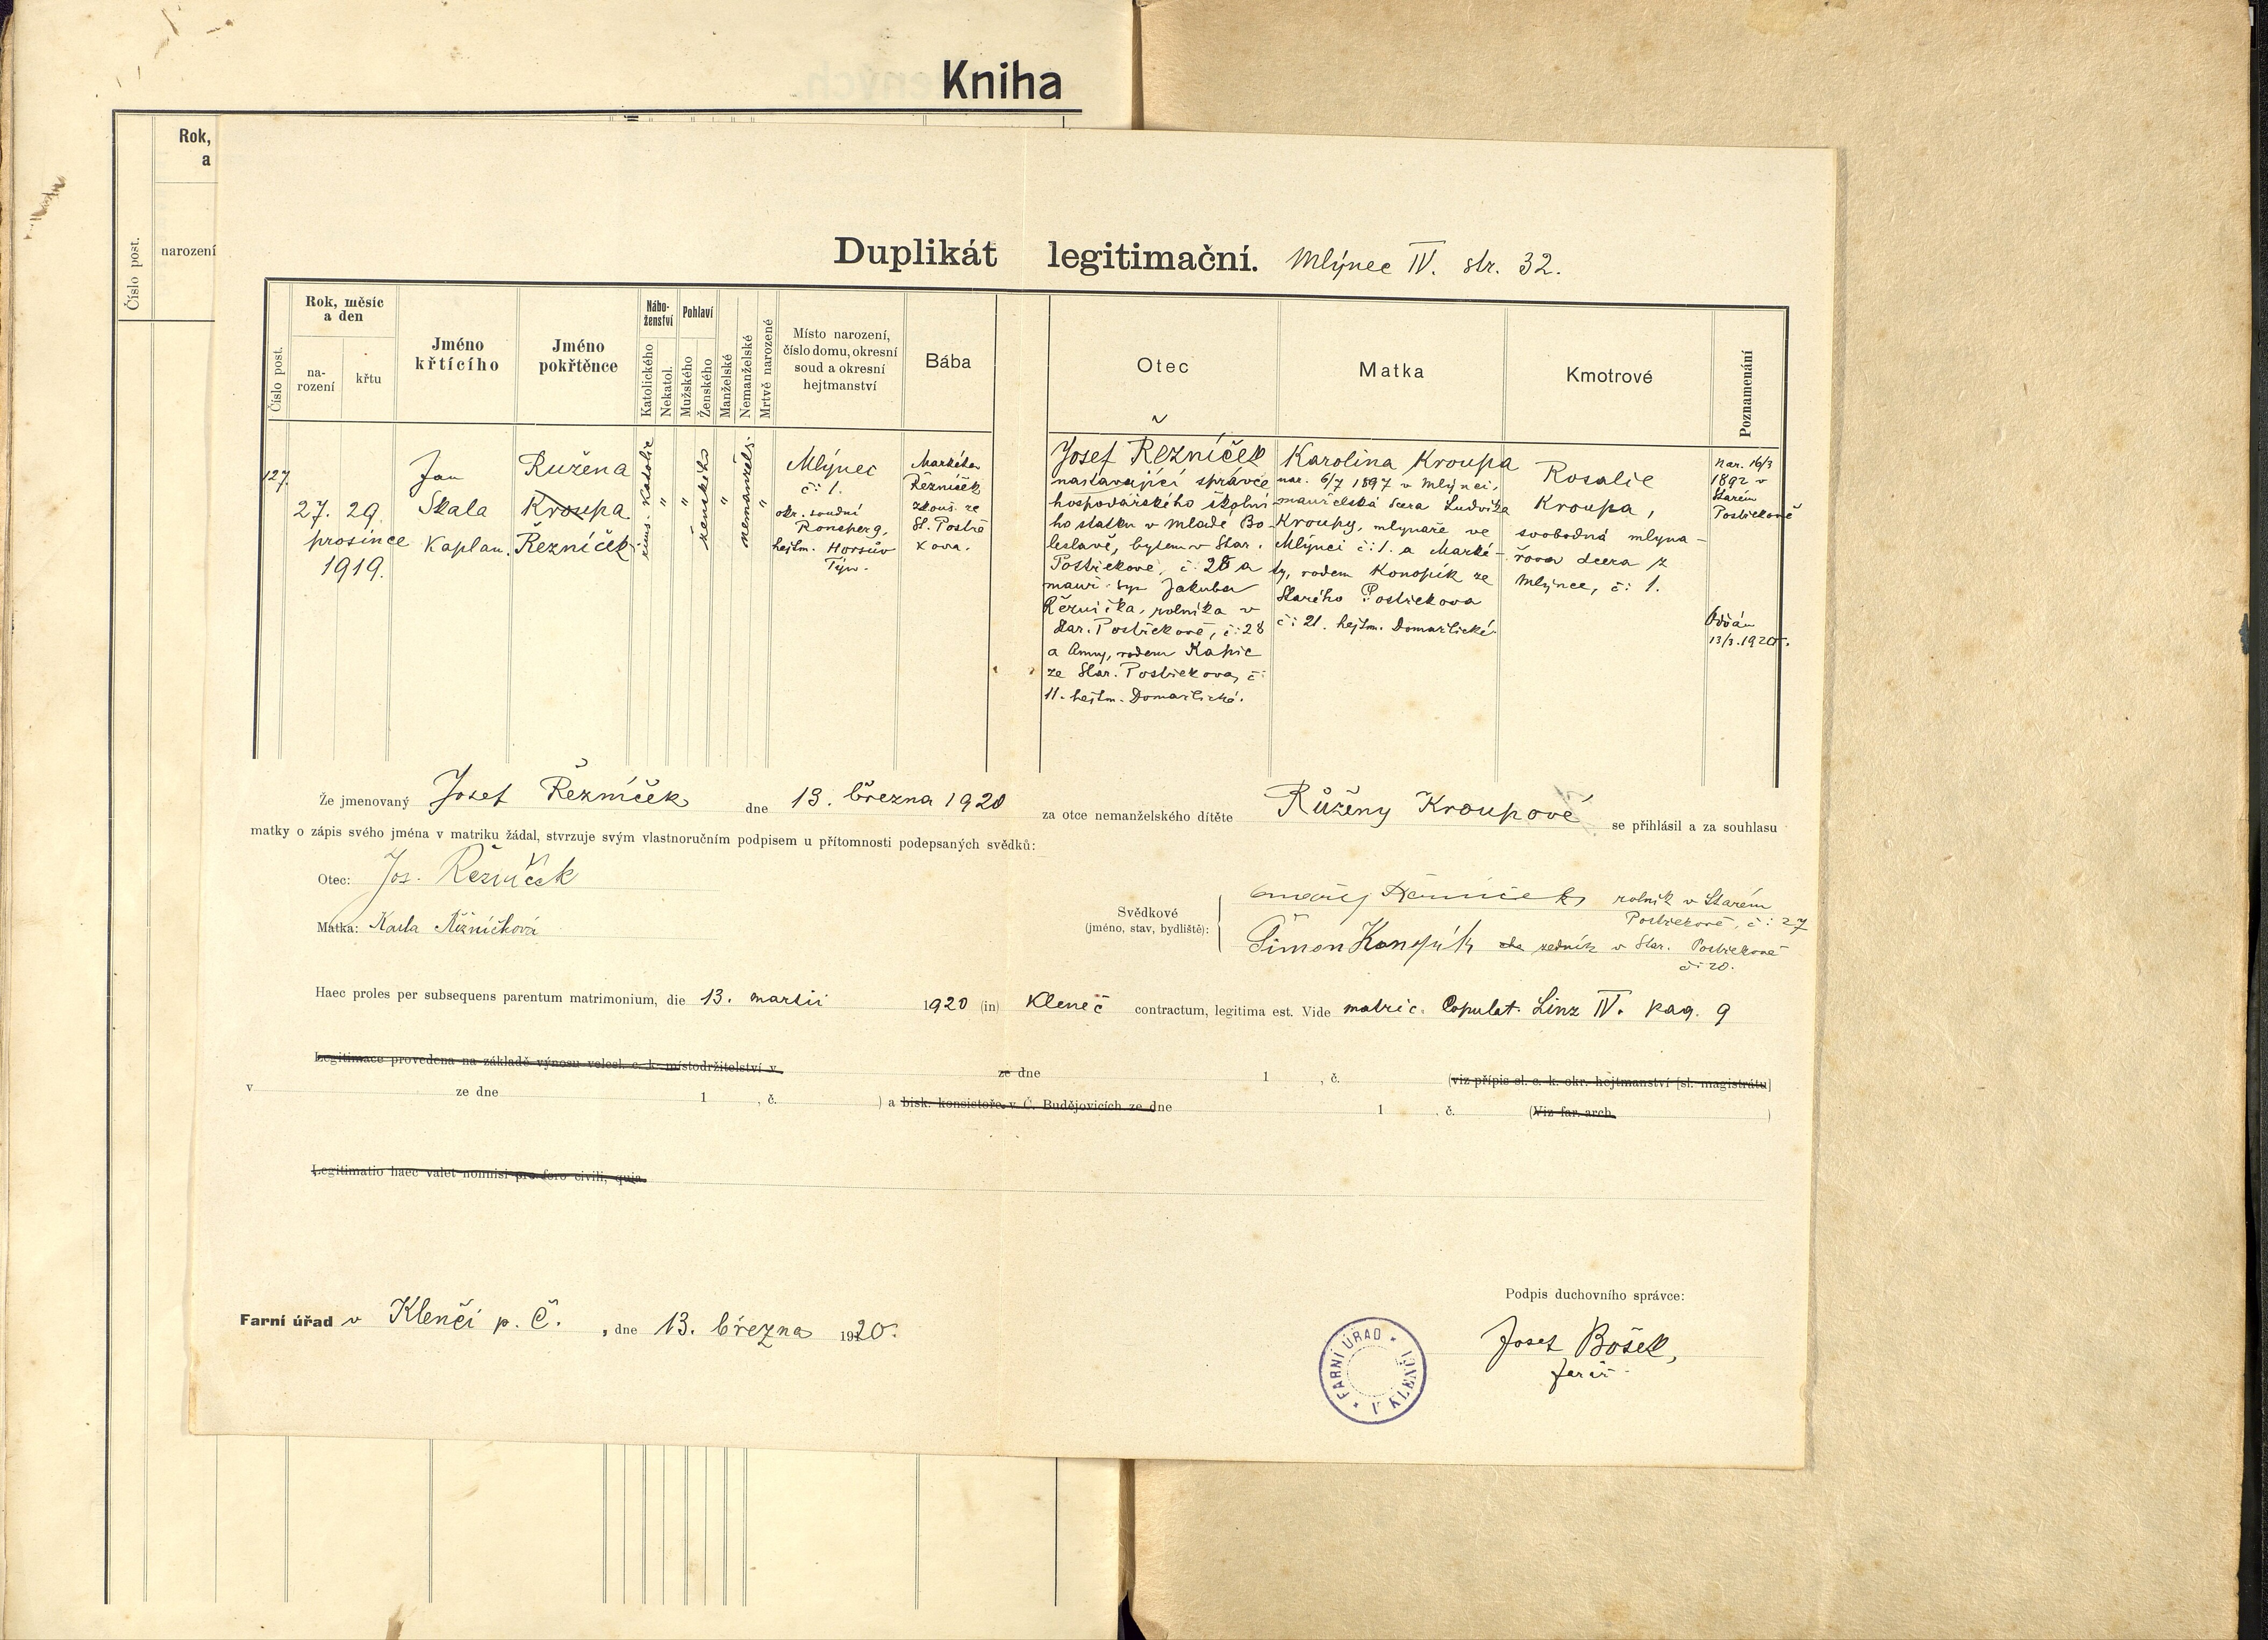 Kniha
Rok,
a
Číslo post.
narození
Duplikát legitimační. Mlýnec IV. str. 32.
Číslo post.
Rok, měsíc
a den
na-
rození
křtu
Jméno
křtícího
Jméno
pokřtěnce
Nábo-
ženství
Katolického
Nekatol.
Pohlaví
Mužského
Ženského
Manželské
Nemanželské
Mrtvě narozené
Místo narození,
číslo domu, okresní
soud a okresní
hejtmanství
Bába
Otec
Matka
Kmotrové
Poznamenání
127.
27. 29.
prosince
1919.
Jan
Skala
kaplan.
Ružena
Kroupa
Řezníček.
řims. katolic
"
"
ženského
"
nemanžels.
"
Mlýnec
č: 1.
okr. soudní
Ronsperg,
hejtm. Horsův
Týn.
Markéta
Řezníček
zkouš. ze
St. Postře
kova.
Josef Řezníček
nastávající správce
hospodářského školní
ho statku v Mladé Bo-
leslavě, bytem v Star.
Postřekově, č: 28 a
manž. syn Jakuba
Řezníčka, rolníka v
Star. Postřekově, č: 28
a Anny, rodem Kapic
ze Star. Postřekova, č:
11. hejtm. Domažlické.
Karolina Kroupa
nar. 6/7 1897 v Mlýnci,
manželská dcera Ludvíka
Kroupy, mlynáře ve
Mlýnci č: 1. a Marké-
ty, rodem Konopík ze
Starého Postřekova
č: 21. hejtm. Domažlické.
Rosalie
Kroupa,
svobodná mlyna-
řova dcera z
Mlýnce, č: 1.
nar. 16/3
1892 v
Starém
Postřekově
Oddán
13/3. 1920.
Že jmenovaný Josef Řezníček dne 13. března 1920 za otce nemanželského dítěte Růženy Kroupové se přihlásil a za souhlasu
matky o zápis svého jména v matriku žádal, stvrzuje svým vlastnoručním podpisem u přítomnosti podepsaných svědků:
Otec: Jos. Řezníček
Matka: Karla Řezníčková
Svědkové
(jméno, stav, bydliště):
Řezníček rolník v Starém
Postřekově, č: 27
Šimon Konopík zedník v Star. Postřekově
č: 20.
Haec proles per subsequens parentum matrimonium, die 13. martii 1920 (in) Kleneč contractum, legitima est. Vide matric. Copulat. Linz IV. pag. 9
Legitimace provedena na základě výnosu velesl. c. k. místodržitelství v ze dne 1 , č. (viz přípis sl. c. k. okr. hejtmanství [sl. magistrátu]
v ze dne 1 , č. ) a bisk. konsistoře v Č. Budějovicích ze dne 1 , č. (Viz far. arch. )
Legitimatio haec valet nonnisi pro foro civili, quia
Farní úřad v Klenčí p. Č. , dne 13. března 1920.
Podpis duchovního správce:
Josef Bošek,
farář
FARNÍ ÚŘAD V KLENČÍ